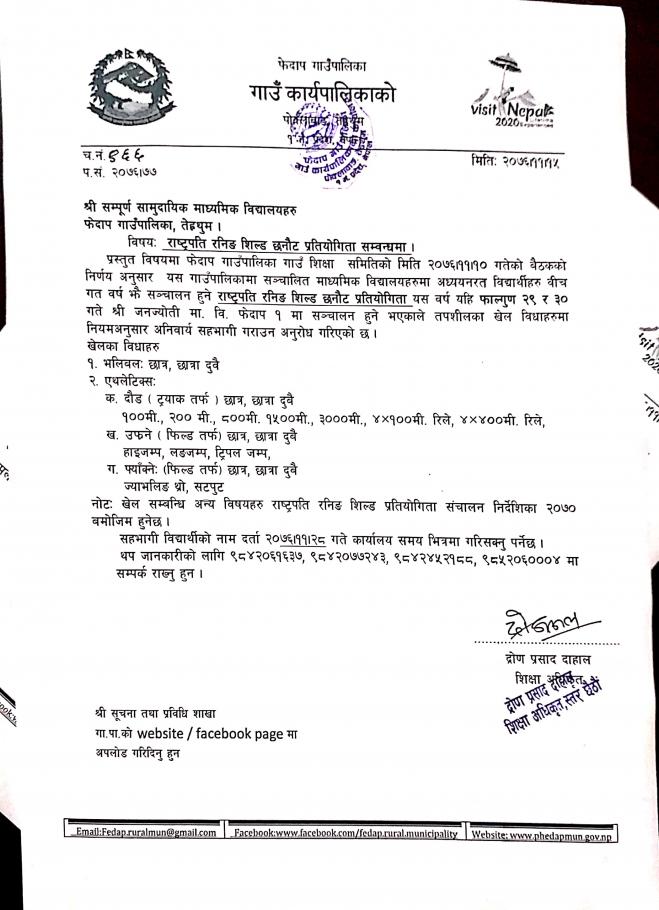 फेदाप गाउँपालिका
गाउँ कार्यपालिकाको
visit Nepal
2020
च.नं.९६६
प.सं. २०७६।७७
मितिः २०७६।११।१५
श्री सम्पूर्ण सामुदायिक माध्यमिक विद्यालयहरु
फेदाप गाउँपालिका, तेह्रथुम ।
विषयः राष्ट्रपति रनिङ शिल्ड छनौट प्रतियोगिता सम्वन्धमा ।
प्रस्तुत विषयमा फेदाप गाउँपालिका गाउँ शिक्षा समितिको मिति २०७६।११।१० गतेको बैठकको
निर्णय अनुसार यस गाउँपालिकामा सञ्चालित माध्यमिक विद्यालयहरुमा अध्ययनरत विद्यार्थीहरु वीच
गत वर्ष झै सञ्चालन हुने राष्ट्रपति रनिङ शिल्ड छनौट प्रतियोगिता यस वर्ष यहि फाल्गुण २९ र ३०
गते श्री जनज्योती मा. वि. फेदाप १ मा सञ्चालन हुने भएकाले तपशीलका खेल विधाहरुमा
नियमअनुसार अनिवार्य सहभागी गराउन अनुरोध गरिएको छ ।
खेलका विधाहरु
१. भलिबलः छात्र, छात्रा दुवै
२. एथलेटिक्सः
क. दौड ( ट्रयाक तर्फ ) छात्र, छात्रा दुवै
१००मी., २०० मी., ८००मी. १५००मी., ३०००मी., ४×१००मी. रिले, ४×४००मी. रिले,
ख. उफ्ने ( फिल्ड तर्फ) छात्र, छात्रा दुवै
हाइजम्प, लङजम्प, ट्रिपल जम्प,
ग. फ्याँक्नेः (फिल्ड तर्फ) छात्र, छात्रा दुवै
ज्याभलिङ थ्रो, सटपुट
नोटः खेल सम्वन्धि अन्य विषयहरु राष्ट्रपति रनिङ शिल्ड प्रतियोगिता संचालन निर्देशिका २०७०
बमोजिम हुनेछ ।
सहभागी विद्यार्थीको नाम दर्ता २०७६।११।२८ गते कार्यालय समय भित्रमा गरिसक्नु पर्नेछ ।
थप जानकारीको लागि ९८४२०६१६३७, ९८४२०७७२४३, ९८४२४५२१८८, ९८५२०६०००४ मा
सम्पर्क राख्नु हुन ।
द्रोण प्रसाद दाहाल
शिक्षा अधिकृत
द्रोण प्रसाद दाहाल
शिक्षा अधिकृत, स्तर छैठौं
श्री सूचना तथा प्रविधि शाखा
गा.पा.को website / facebook page मा
अपलोड गरिदिनु हुन
Email:Fedap.ruralmun@gmail.com Facebook:www.facebook.com/fedap.rural.municipality Website: www.phedapmun.gov.np